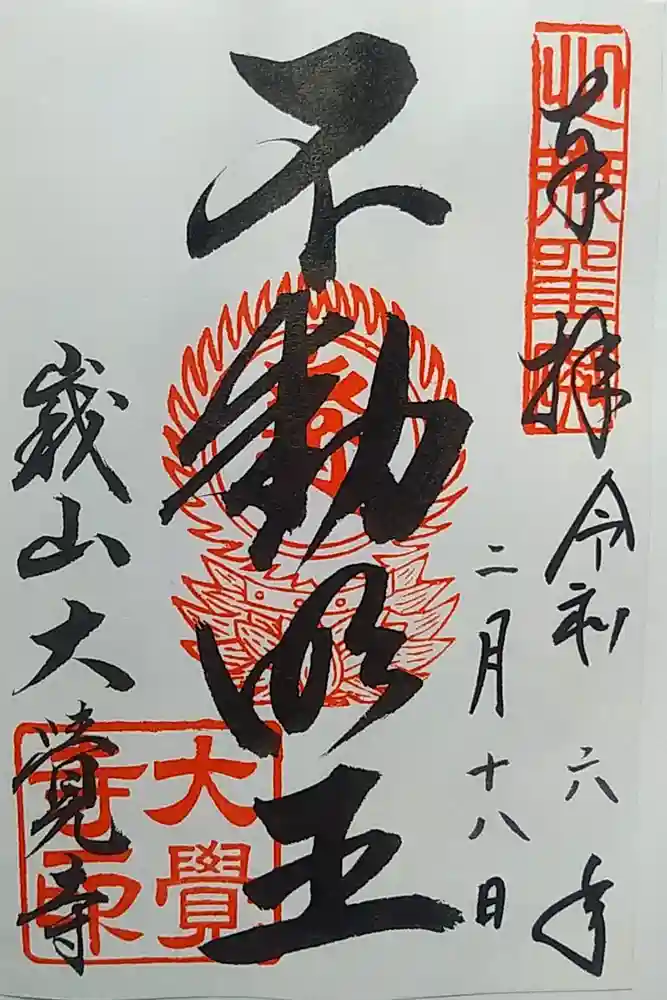 奉拝
令和六年
二月十八日
不動明王
嵯峨山大覺寺
大覺
寺印